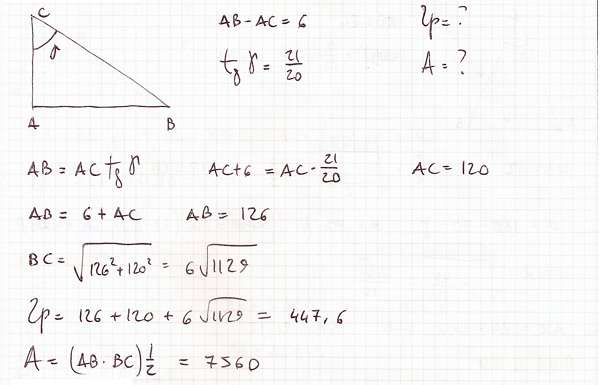 C
AB - AC = 6
2p = ?
γ
tg γ = 21/20
A = ?
A B
AB = AC tg γ AC + 6 = AC · 21/20 AC = 120
AB = 6 + AC AB = 126
BC = √126² + 120² = 6√1129
2p = 126 + 120 + 6√1129 = 447,6
A = (AB · BC) 1/2 = 7560